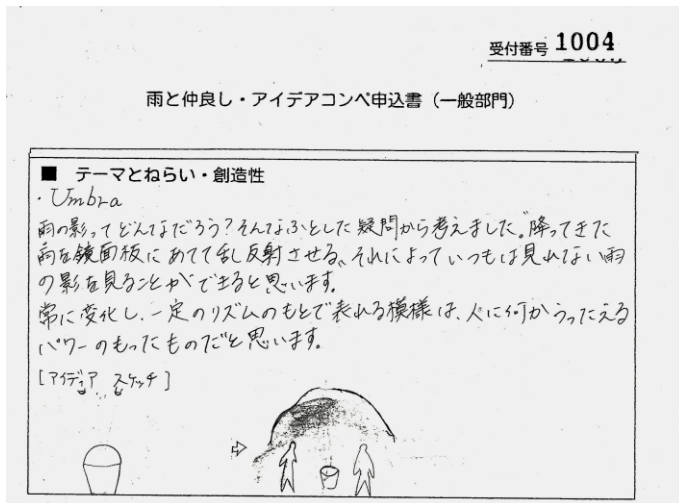 受付番号 1004
雨と仲良し・アイデアコンペ申込書（一般部門）
■ テーマとねらい・創造性
・Umbra
雨の影ってどんなだろう？そんなふとした疑問から考えました。降ってきた
雨を鏡面板にあてて乱反射させる。それによっていつもは見れない雨
の影を見ることができると思います。
常に変化し、一定のリズムのもとで表れる模様は、人に何かうったえる
パワーのもったものだと思います。
[アイディア スケッチ]